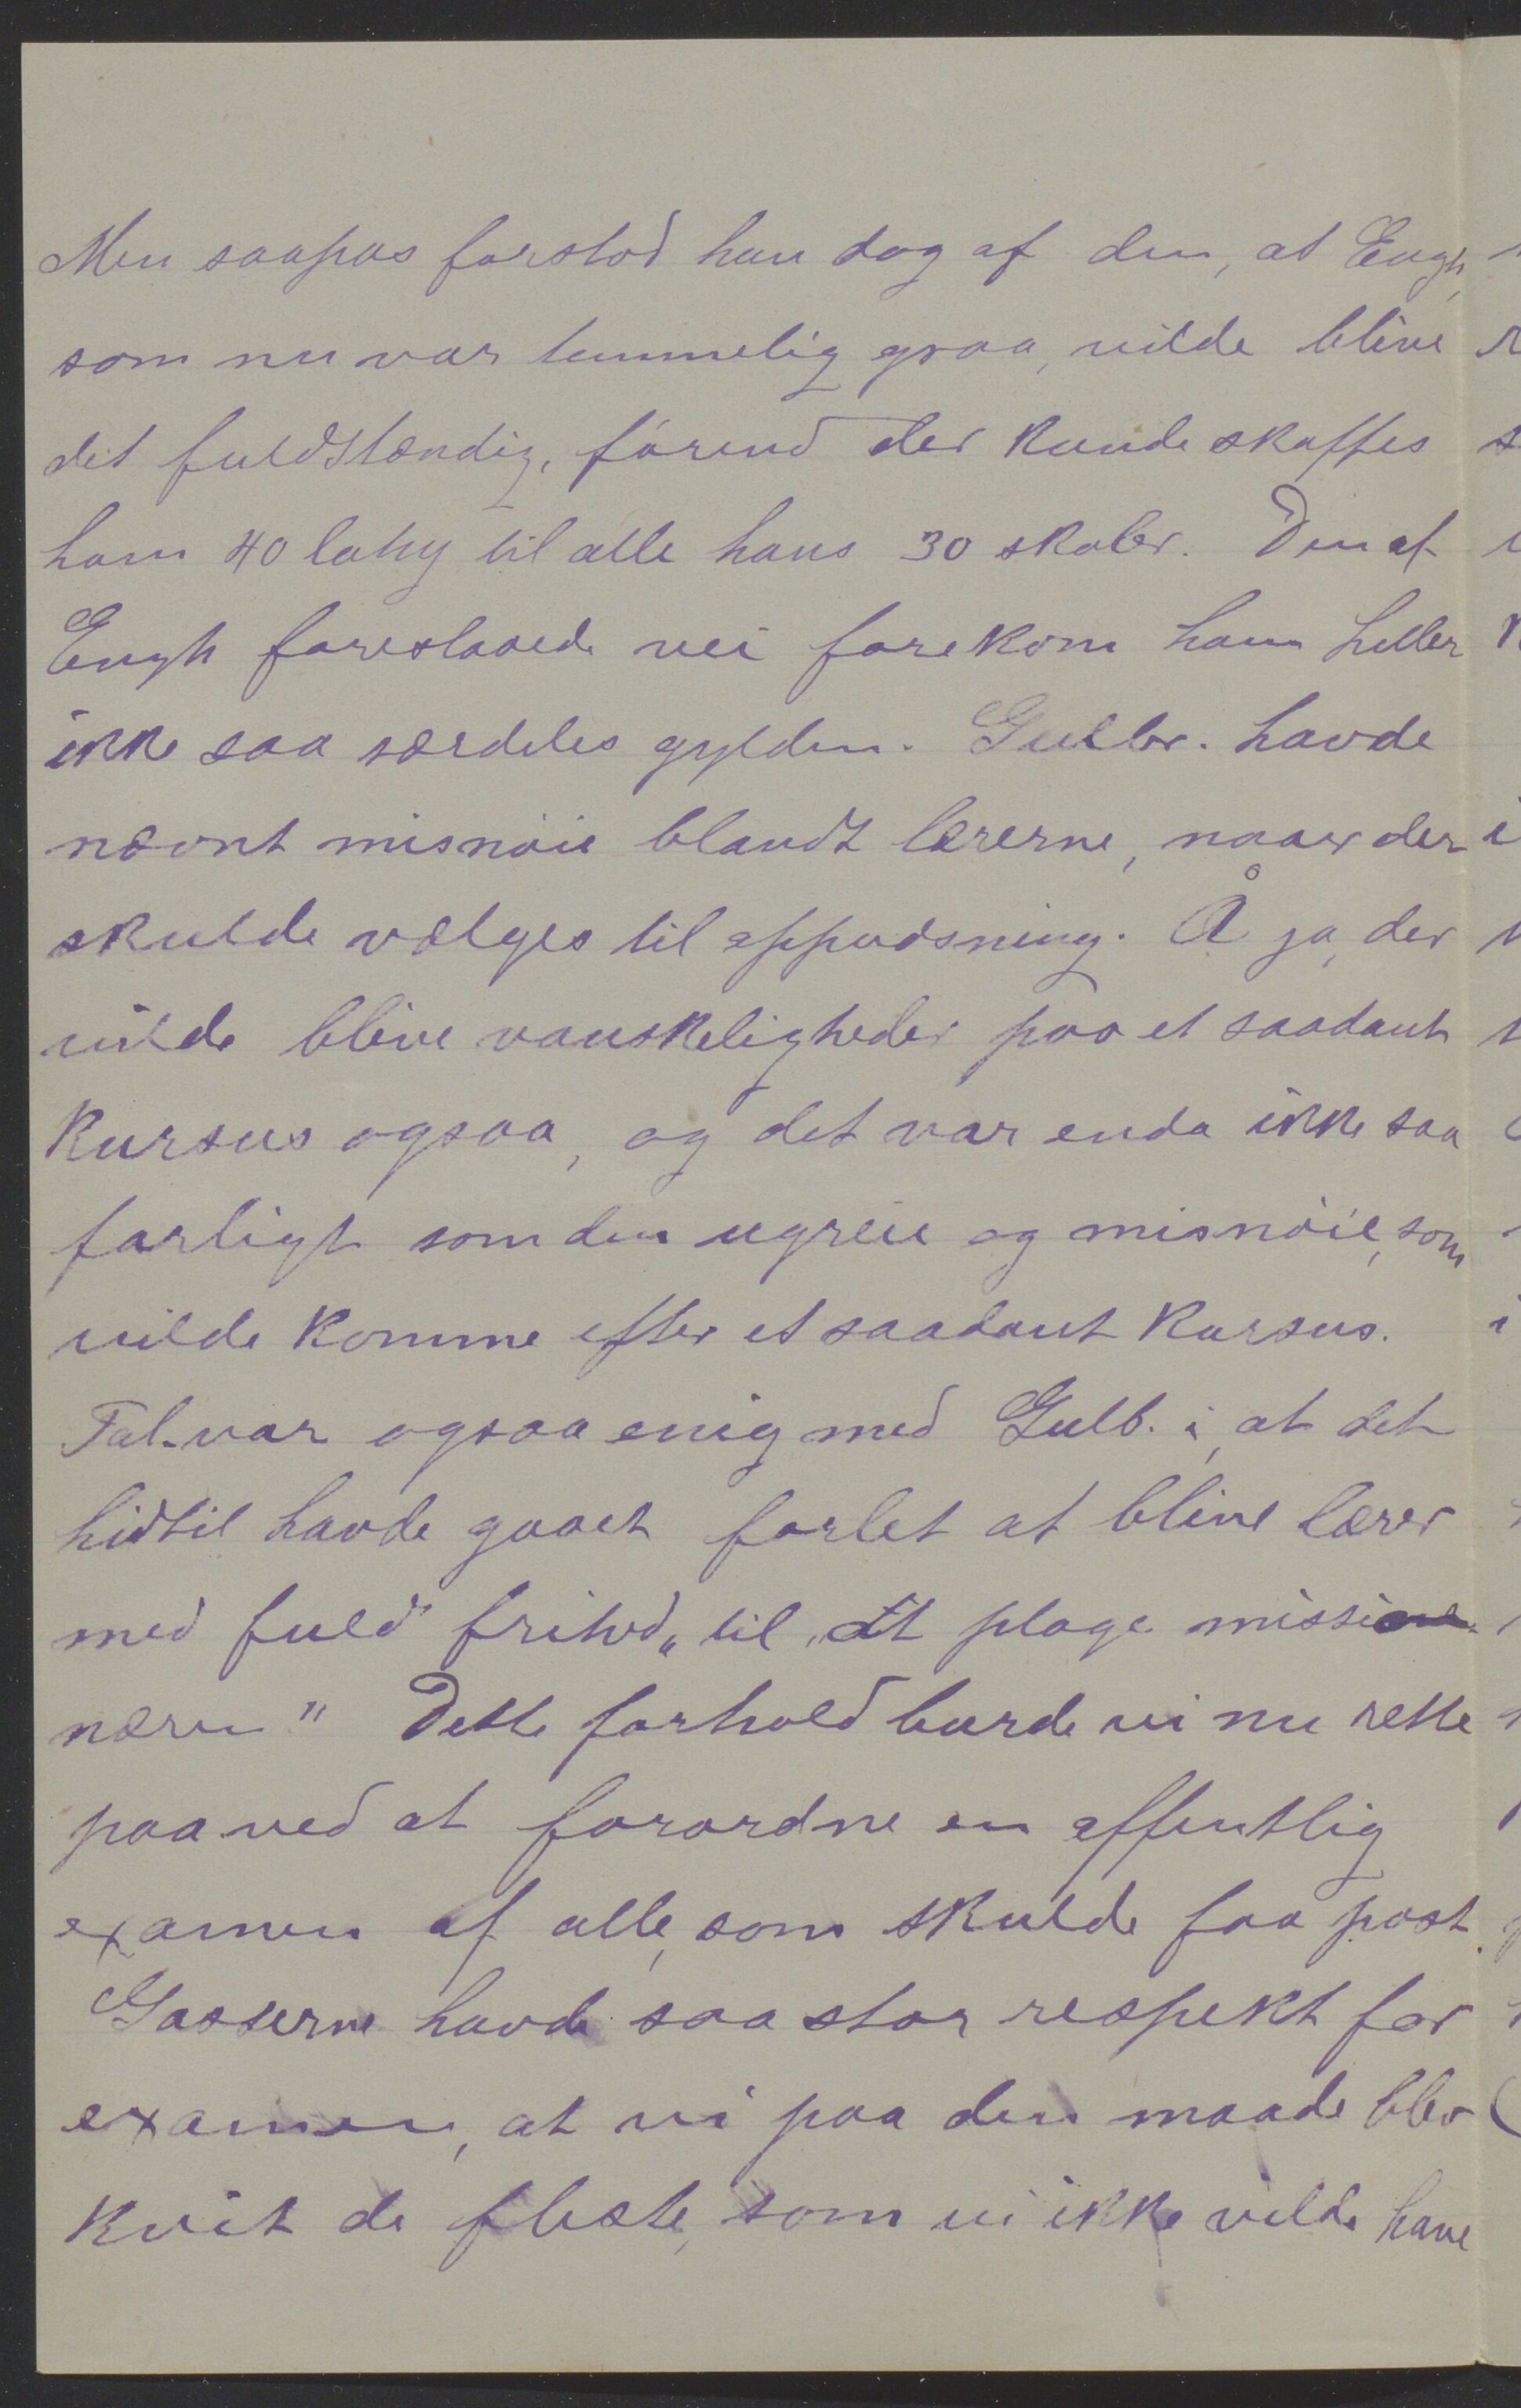 Men saapas forstod han dog af den, at Engh,
som nu var temmelig graa, vilde blive
det fuldstændig, förend der kunde skaffes
ham 40 lahy til alle hans 30 skoler. Den af
Engh foreslaaede vei forekom ham heller
ikke saa særdeles gylden. Gulbr. havde
nævnt misnöie blandt lærerne, naar der
skulde vælges til oppudsning. Å ja, der
vilde blive vanskeligheder paa et saadant
kursus ogsaa, og det var enda ikke saa
farligt som den ugreie og misnöie, som
vilde komme efter et saadant kursus.
Tal. var ogsaa enig med Gulb. i, at det
hidtil havde gaaet forlet at blive lærer
med fuld frihed „til „at plage missio
næren" Dette forhold burde vi nu rette
paa ved at forordne en offentlig
examen af alle, som skulde faa post.
Gasserne havde saa stor respekt for
examen, at vi paa den maade blev
kvit de fleste, som vi ikke vilde have